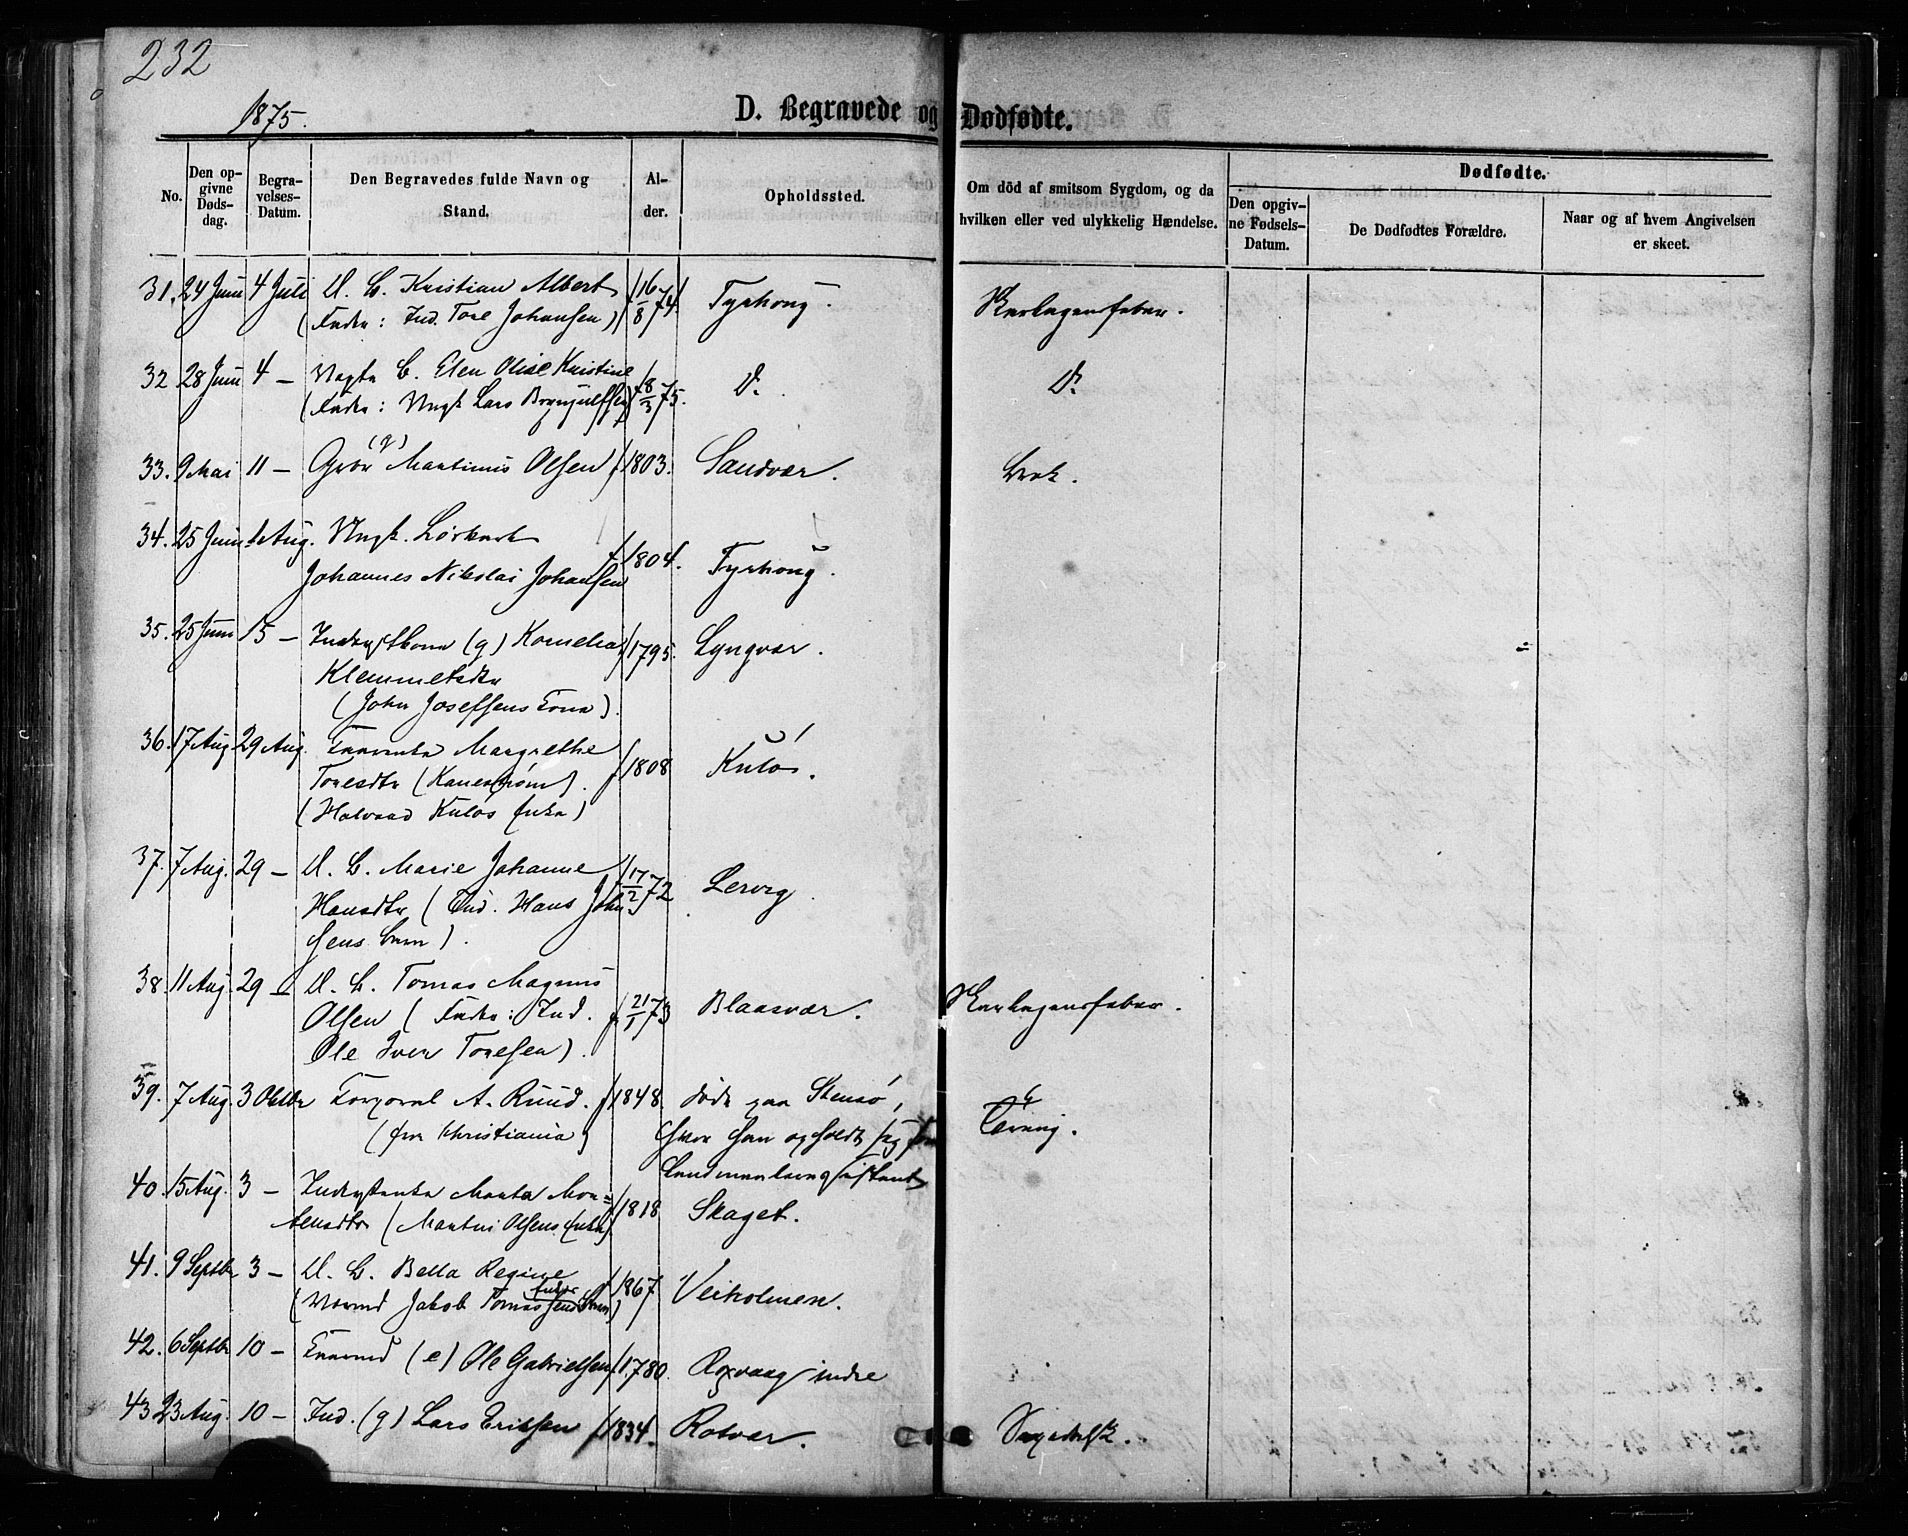 232
1875.
D. Begravede og Dødfødte.
No.
Den opgivne Dødsdag.
Begravelses-Datum.
Den Begravedes fulde Navn og Stand.
Alder.
Opholdssted.
Om död af smitsom Sygdom, og da hvilken eller ved ulykkelig Hændelse.
Dødfødte.
Den opgivne Fødsels-Datum.
De Dødfødtes Forældre.
Naar og af hvem Angivelsen er skeet.
31. 24 Juni 4 Juli U. B. Kristian Albert f 16/8 74. Tyrhoug. Skarlagensfeber.
(Fader: Ind. Tore Johansen)
32 28 Juni 4 — B. Elen Olise Kristine f 8/3 75. Do Do
(Fader: Ungk Lars
33. 9 Mai 11 — (g) Martinus Olsen f 1803. Sandvær. Brok.
34. 25 Juni 1 Aug. Ungk.
Johannes Nikolai Johansen f 1804. Tyrhoug.
35. 25 Juni 15 — (g) Kornelia f 1795. Lyngvær.
Klemmetsdtr
(John Josefsens Kone).
36. 17 Aug 29 Aug. Margrethe f 1808 Kulø.
Toresdtr
(Halvaad Kuløs Enke)
37. 7 Aug. 29 — U. B. Marie Johanne f 17/2 72 Lervig.
Hansdtr (Ind. Hans John
sens Barn).
38. 11 Aug. 29 — U. B. Tomas Magnus
Olsen (Fader: Ind. f 21/1 73 Blaasvær. Skarlagensfeber.
Ole Iver Toresen).
39. 7 Aug. 3 Oktbr Korporal A. Ruud. f 1848. døde paa Stensø, Tæring.
(fra Christiania) hvor han opholdt sig som
40. 15 Aug. 3 — Marta Mor=
tensdtr (Martin Olsens Enke). f 1818 Skaget.
41. 9 Septbr 3 — U. B. Bella Regine f 1867 Veiholmen.
Jakob Tomassens Barn)
42. 6 Septbr 10 — (e) Ole Gabrielsen f 1780. Roxvaag indre
43 23 Aug. 10 — Ind. (g) Lars Eriksen f 1834. Rotvær.